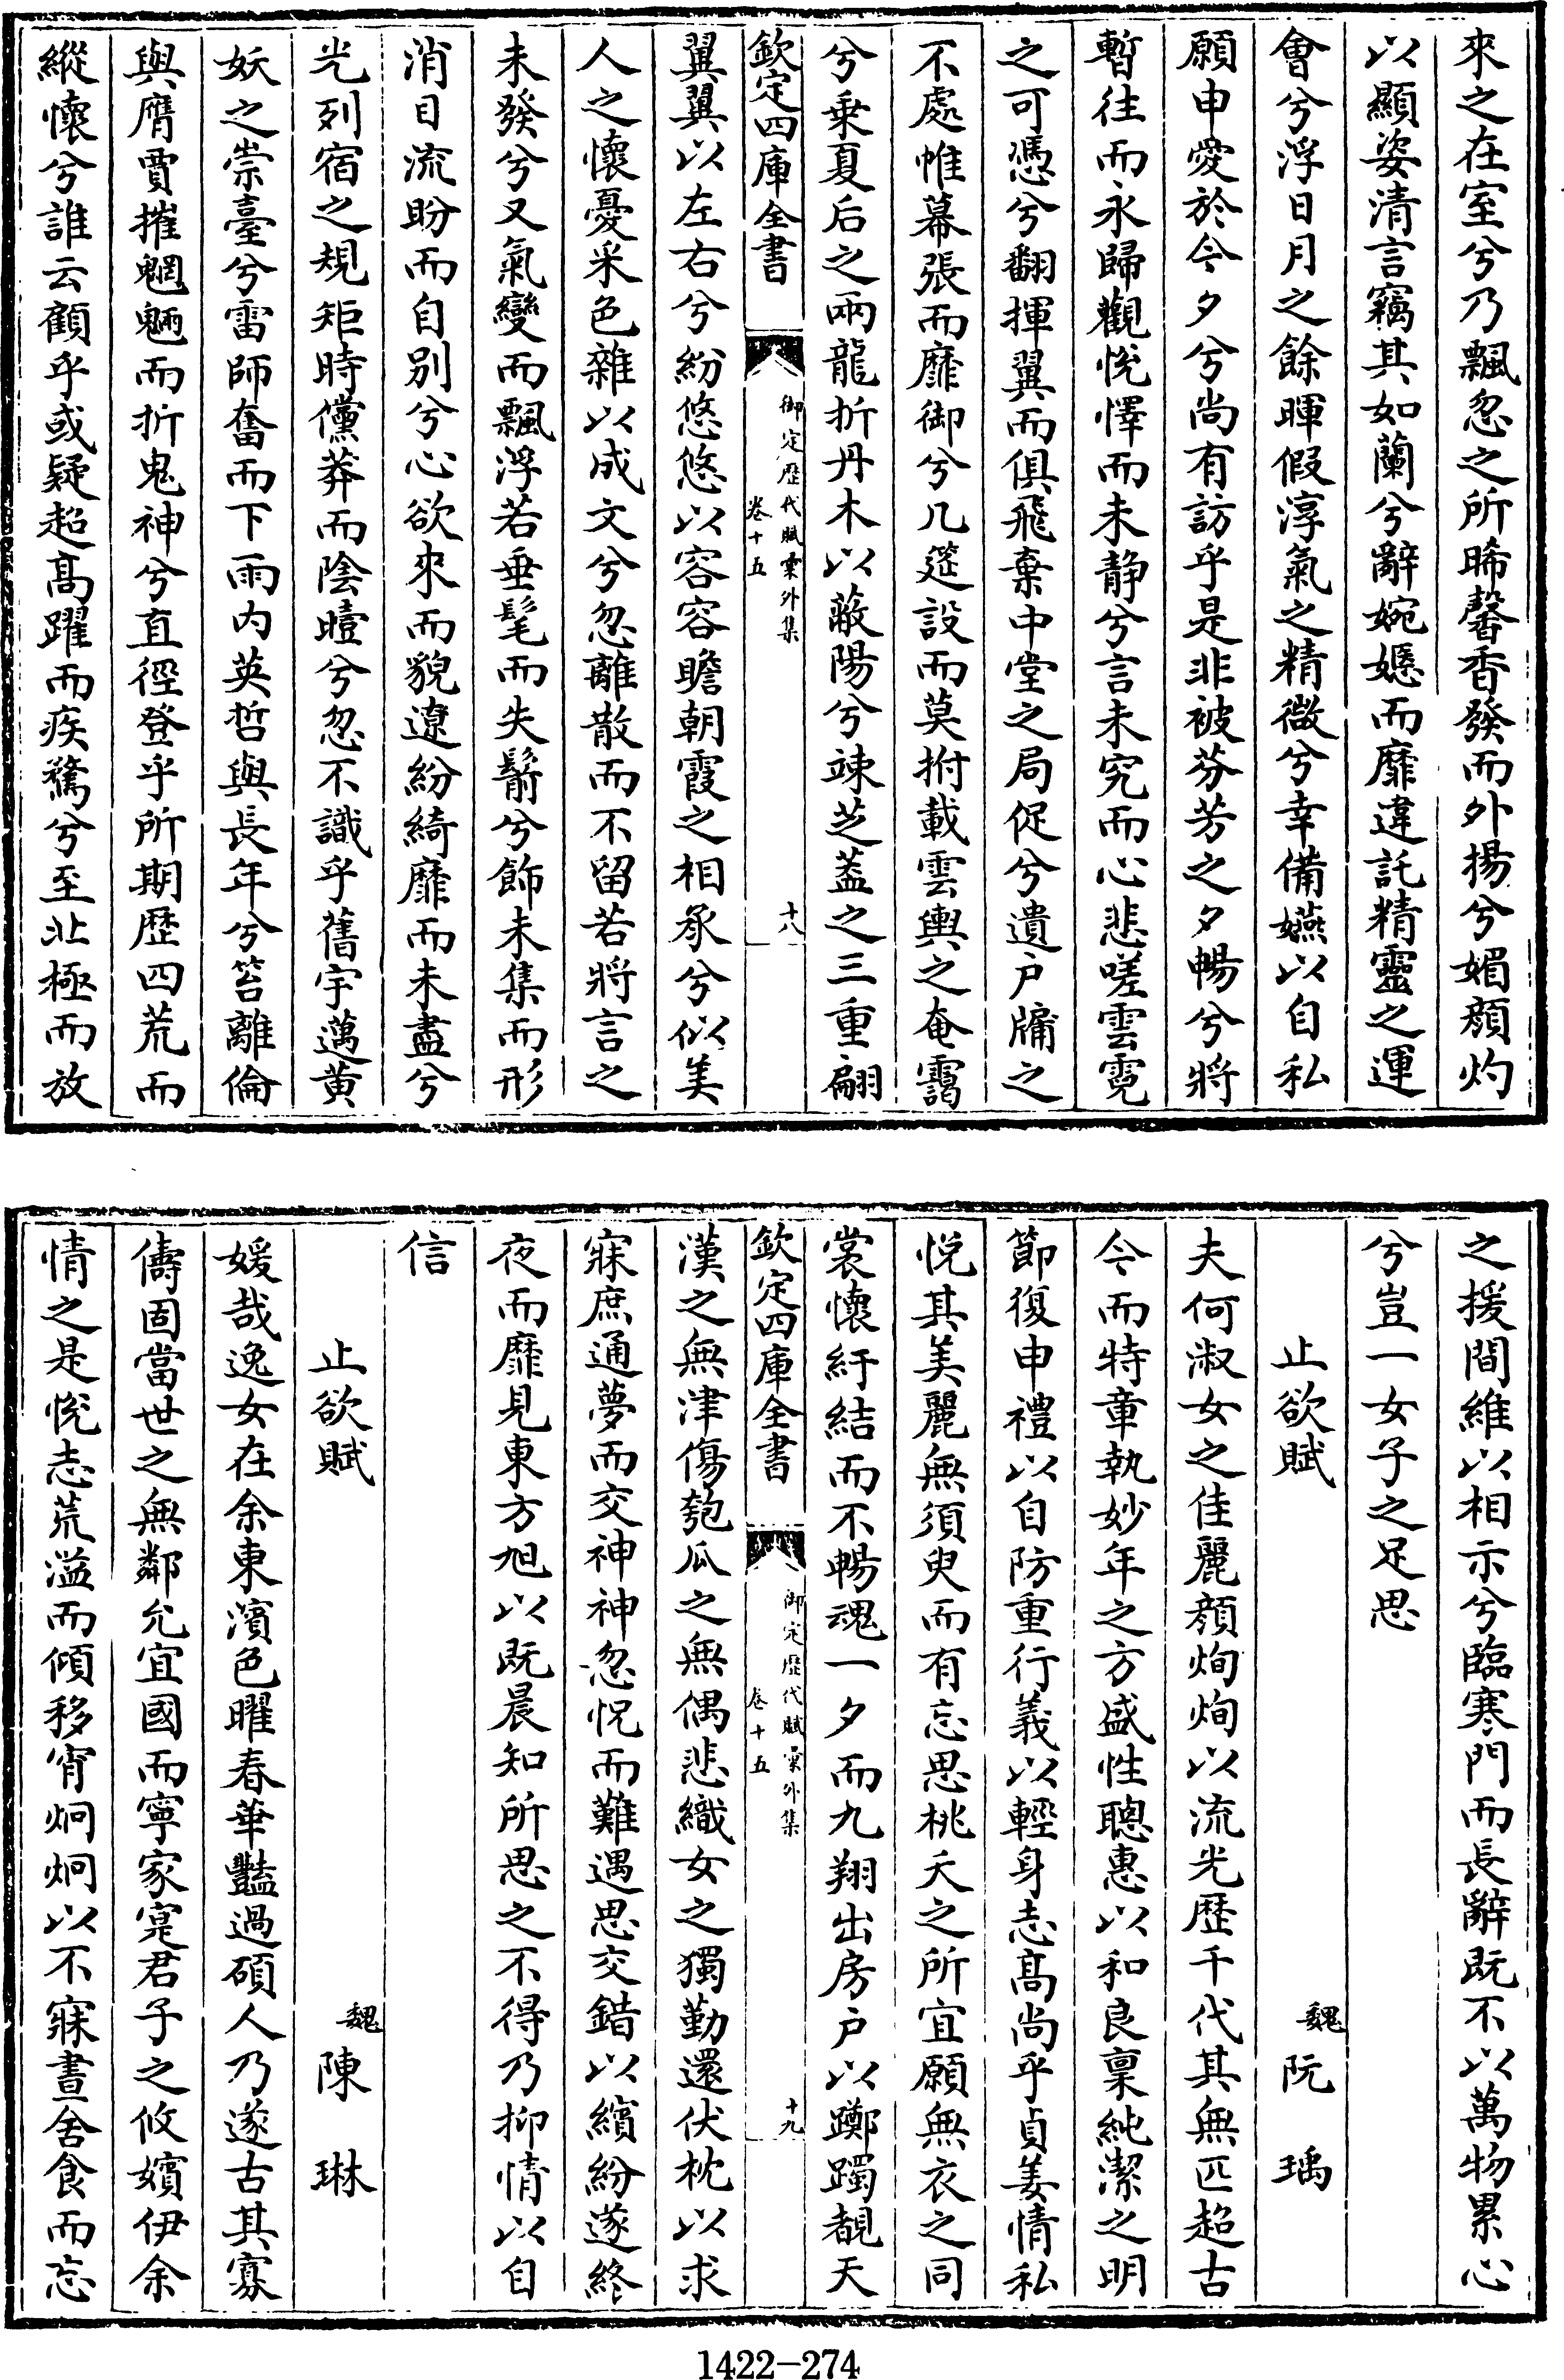 來之在室兮乃飄忽之所晞馨香發而外揚兮媚顔灼
以顯姿清言竊其如蘭兮辭婉嫕而靡違託精靈之運
會兮浮日月之餘暉假淳氣之精微兮幸備嬿以自私
願申愛於今夕兮尚有訪乎是非被芬芳之夕暢兮將
暫往而永歸觀悅懌而未静兮言未究而心悲嗟雲霓
之可憑兮翻揮翼而俱飛棄中堂之局促兮遺户牖之
不處帷幕張而靡御兮几筵設而莫拊載雲輿之奄靄
兮乗夏后之兩龍折丹木以蔽陽兮竦芝蓋之三重翩
欽定四庫全書
御定歷代賦彙外集
卷十五
十八
翼翼以左右兮紛悠悠以容容瞻朝霞之相承兮似美
人之懷憂采色雜以成文兮忽離散而不留若將言之
未發兮又氣變而飄浮若垂髦而失鬋兮飾未集而形
消目流盼而自别兮心欲來而貌遼紛綺靡而未盡兮
光列宿之規矩時儻莽而陰曀兮忽不識乎舊宇邁黄
妖之崇臺兮雷師奮而下雨内英哲與長年兮笞離倫
與膺賈摧魍魎而折鬼神兮直徑登乎所期歴四荒而
縱懷兮誰云顧乎或疑超髙躍而疾騖兮至北極而放
之援間維以相示兮臨寒門而長辭既不以萬物累心
兮豈一女子之足思
止欲賦 魏阮瑀
夫何淑女之佳麗顔炯炯以流光歴千代其無匹超古
今而特章執妙年之方盛性聰惠以和良禀純潔之明
節復申禮以自防重行義以輕身志髙尚乎貞姜情私
悅其美麗無須臾而有忘思桃夭之所宜願無衣之同
裳懷紆結而不暢魂一夕而九翔出房户以躑躅覩天
欽定四庫全書
御定歷代賦彙外集
卷十五
十九
漢之無津傷匏瓜之無偶悲織女之獨勤還伏枕以求
寐庶通夢而交神神忽怳而難遇思交錯以繽紛遂終
夜而靡見東方旭以既晨知所思之不得乃抑情以自
信
止欲賦 魏陳琳
媛哉逸女在余東濱色曜春華豔過碩人乃遂古其寡
儔固當世之無鄰允宜國而寧家寔君子之攸嬪伊余
情之是悅志荒溢而傾移宵炯炯以不寐晝舍食而忘
1422-274